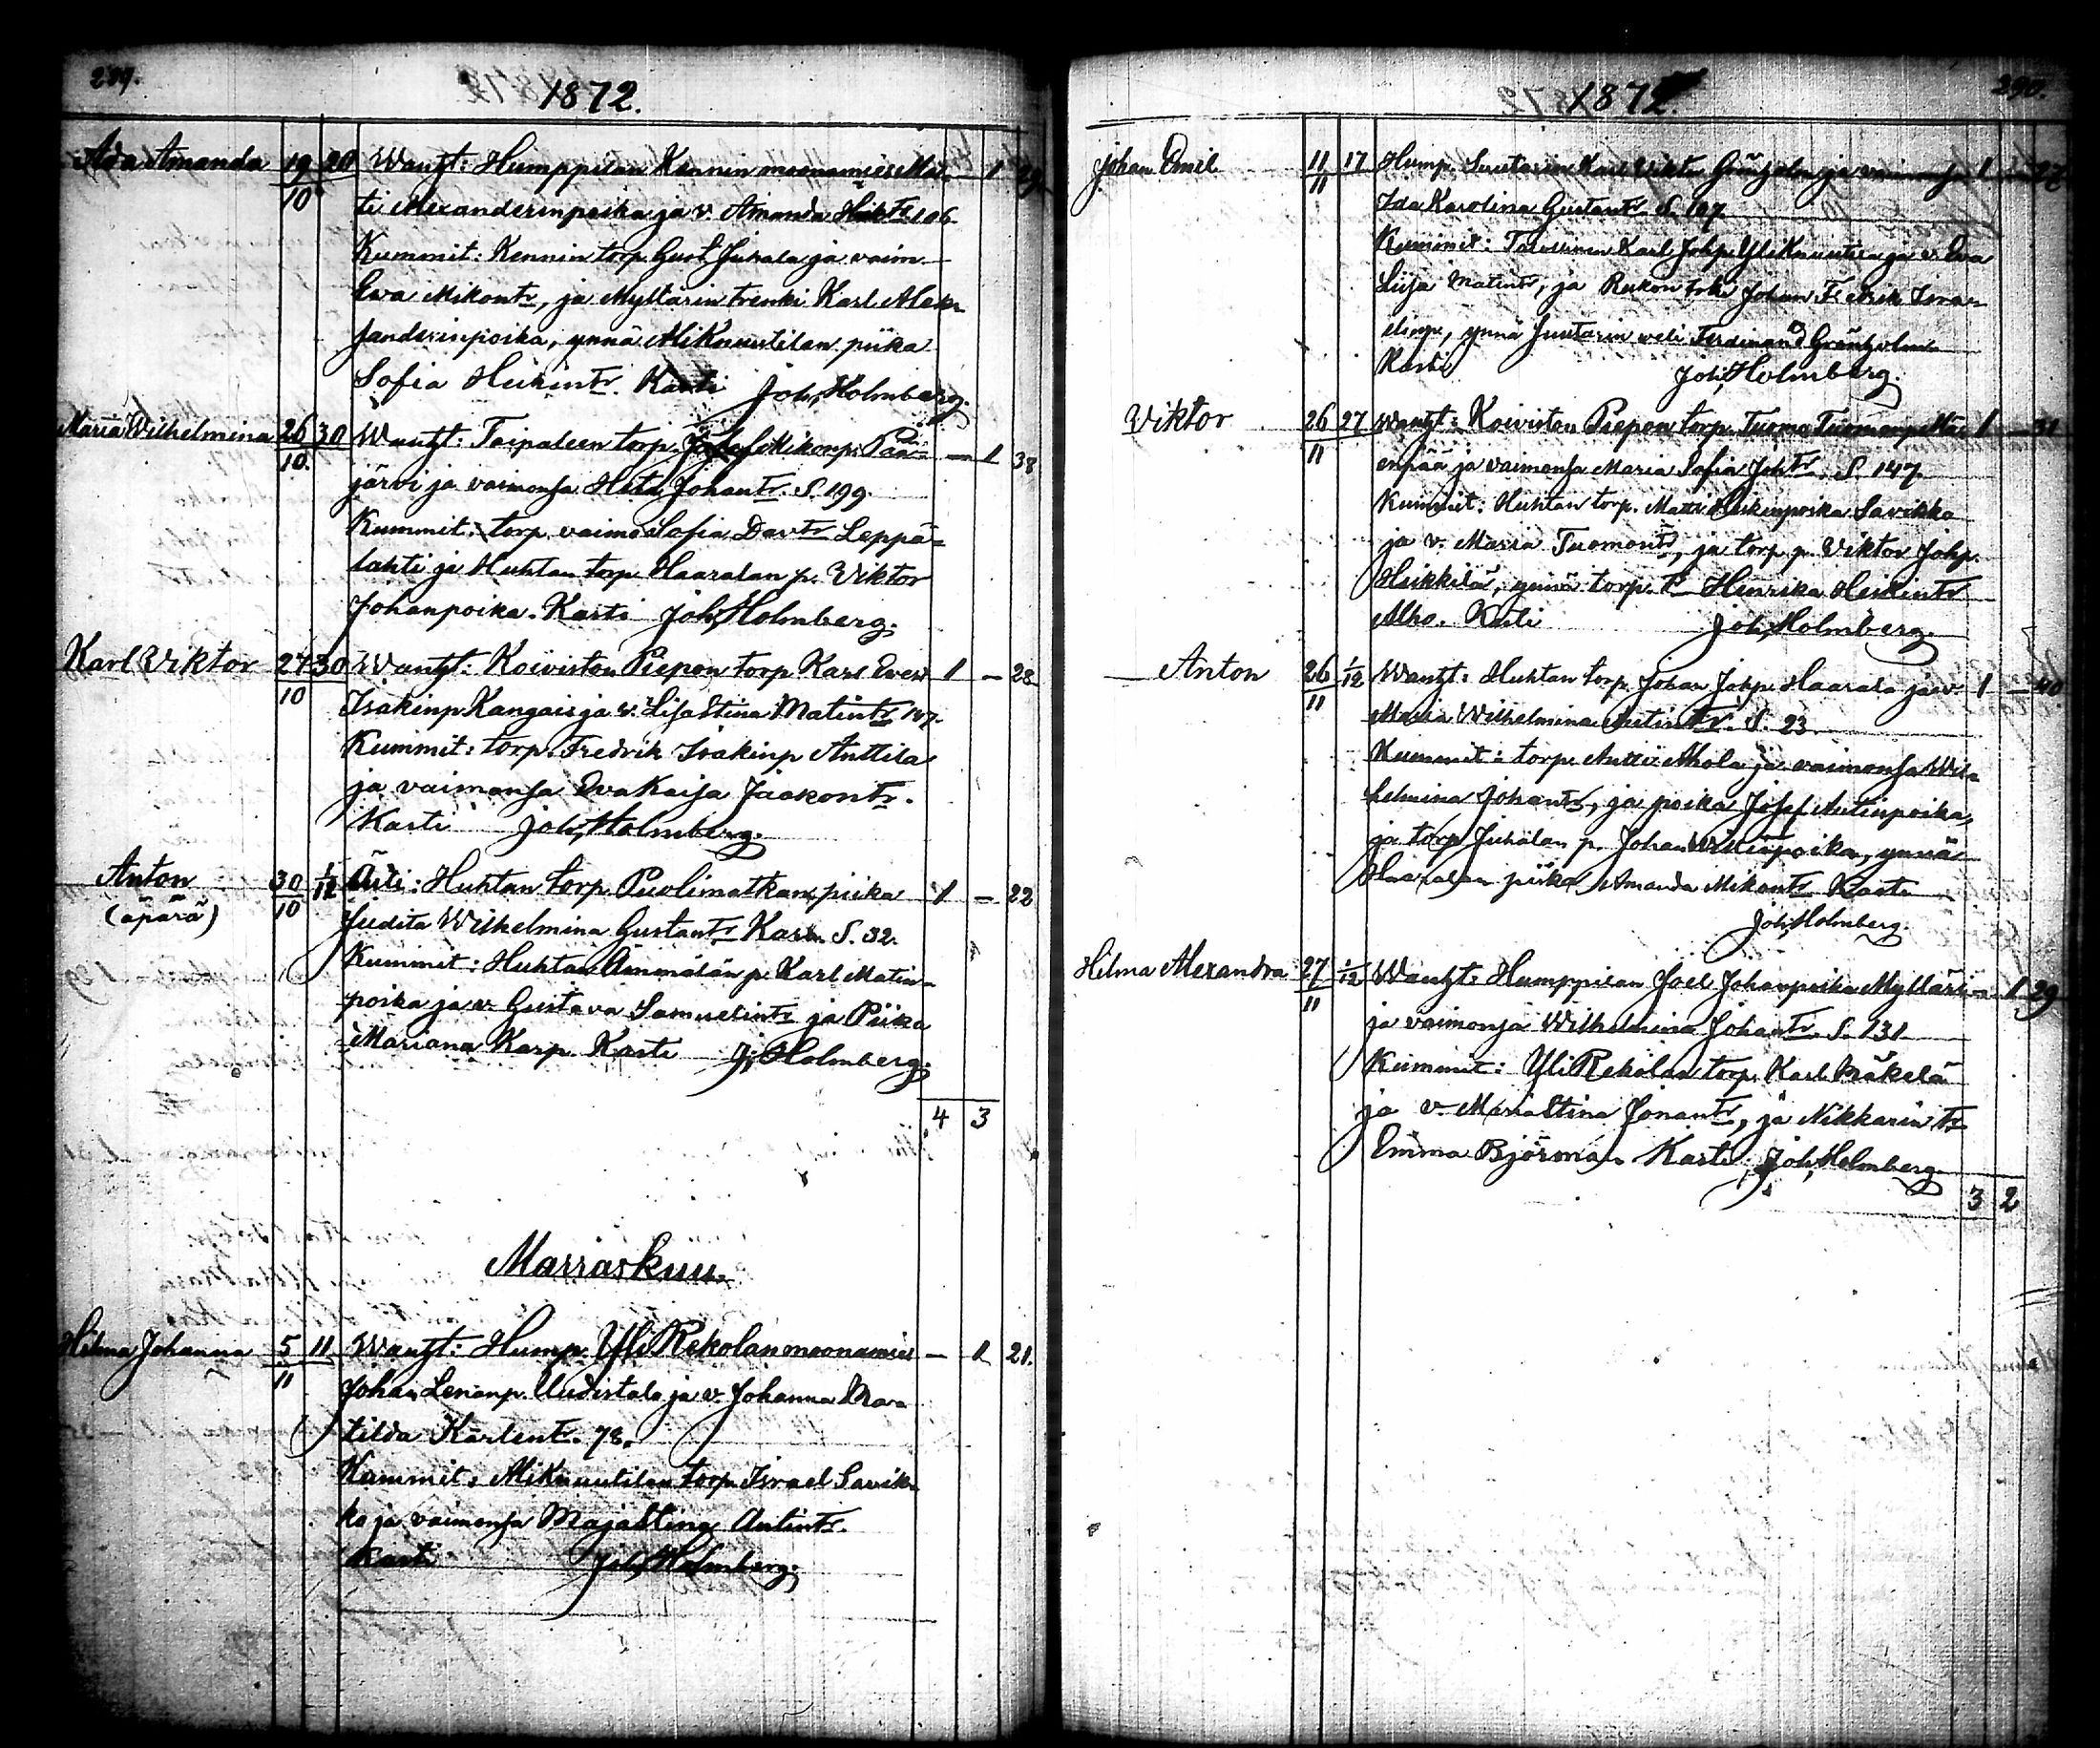 289.
1872.
Ada Amanda 19/10 20 Wanht: Humppilan Kennin moonamies Mat- — 1 29
ti Alexanderinpoika ja v. Amanda Heikts 106.
Kummit: Kennin torp. Gust Juhala ja vaim.
Eva Mikontr, ja Myllärin trenki Karl Alek-
sanderinpoika, ynnä AliKnuutilan piika
Sofia Heikintr. Kasti Joh, Holmberg.
Maria Wilhelmina 26/10 30 Wanht: Taipaleen torp. Josef Mikonp. Pää- — 1 38
järvi ja vaimonsa Heta Johantr. S. 199.
Kummit: torp. vaimo Sofia Davtr Leppä-
lahti ja Huhtan torp. Haaralan p. Viktor
Johanpoika. Kasti Joh, Holmberg.
Karl Viktor 27/10 30 Wanht: Koiviston Piepon torp Karl Evert 1 — 28
Isakinp Kangais ja v. Lisa Stina Matintr 147.
Kummit: torp. Fredrik Isakinp Anttila
ja vaimonsa Eva Kaisa Jaakontr.
Kasti Joh, Holmberg.
Anton (äpärä) 30/10 1/12 Äiti: Huhtan torp. Puolimatkan piika 1 — 22
Judita Wilhelmina Gustantr Karp. S. 32.
Kummit: Huhtan Ämmälän p. Karl Matin-
poika ja v. Gustava Samuelintr ja Piika
Mariana Karp. Kasti J, Holmberg.
4 3
Marraskuu.
Hilma Johanna 5/11 11 Wanht: Hump. Yli Rekolan moonamies — 1 21.
Johan Lenanp. Uudistalo ja v. Johanna Ma-
tilda Karlentr. 78.
Kummit: AliKnuutilan torp. Israel Savik-
ko ja vaimonsa Maja Stina Antintr.
Kasti Joh, Holmberg.
290.
1872.
Johan Emil 11/11 17 Hump. Suutarin Karl Viktor Grönholm ja vaimonsa 1 — 27
Ida Karolina Gustantr S. 107.
Kummit: Talollinen Karl Johp. YliKnuutila ja v. Eva
Liisa Matintr, ja Rekon trki Johan Fredrik Isra-
elinp, ynnä Suutarin veli Ferdinand Grönholm
Kasti Joh, Holmberg.
Viktor 26/11 27 Wanht: Koiviston Piepon torp. Tuomo Tuomonp Mä- 1 — 31
enpää ja vaimonsa Maria Sofia Johtr. S. 147
Kummit: Huhtan torp. Matti Heikinpoika Savikko
ja v. Maria Tuomontr, ja torp. p. Viktor Johp.
Heikkilä, ynnä torp. tr Henrika Heikintr
Alho. Kasti Joh, Holmberg.
Anton 26/11 1/12 Wanht: Huhtan torp. Johan Johp. Haarala ja v. 1 — 40
Maria Wilhelmina Antintr. S. 23.
Kummit: torp. Antti Ahola ja vaimonsa Wil-
helmina Johantr, ja poika Josef Antinpoika,
ja torp Juhalan p. Johan Willenpoika, ynnä
Haaralan piika Amanda Mikontr Kasti
Joh, Holmberg.
Hilma Alexandra 27/11 1/12 Wanht: Humppilan Joel Johanpoika Mylläri — 1 29
ja vaimonsa Wilhelmina Johantr. S. 131
Kummit: Yli Rekolan torp. Karl Mäkelä
ja v. Maria Stina Jonantr, ja Nikkarin tr
Emma Björman Kasti Joh, Holmberg.
3 2